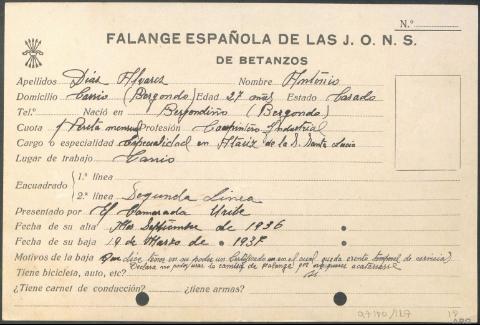 N.º
FALANGE ESPAÑOLA DE LAS J. O. N. S.
DE BETANZOS
Apellidos Días Alvarez Nombre Antonio
Domicilio Carrio (Bergondo) Edad 27 años Estado Casado
Tel.º Nació en Bergondiño (Bergondo)
Cuota 1 Peseta mensual Profesión Carpintero Industrial
Cargo o especialidad Especialidad en de la S. Santa Lucia
Lugar de trabajo Carrio
Encuadrado 1.ª línea
2.ª línea Segunda Linea
Presentado por El Camarada Uribe
Fecha de su alta Mes Septiembre de 1936
Fecha de su baja 19 de Marzo de 1937
Motivos de la baja Que dice tener en su poder un Certificado en el cual queda exento temporal de servicio
Declara no poder usar la camisa de Falange por no querer
Tiene bicicleta, auto, etc?
¿Tiene carnet de conducción? ¿tiene armas?